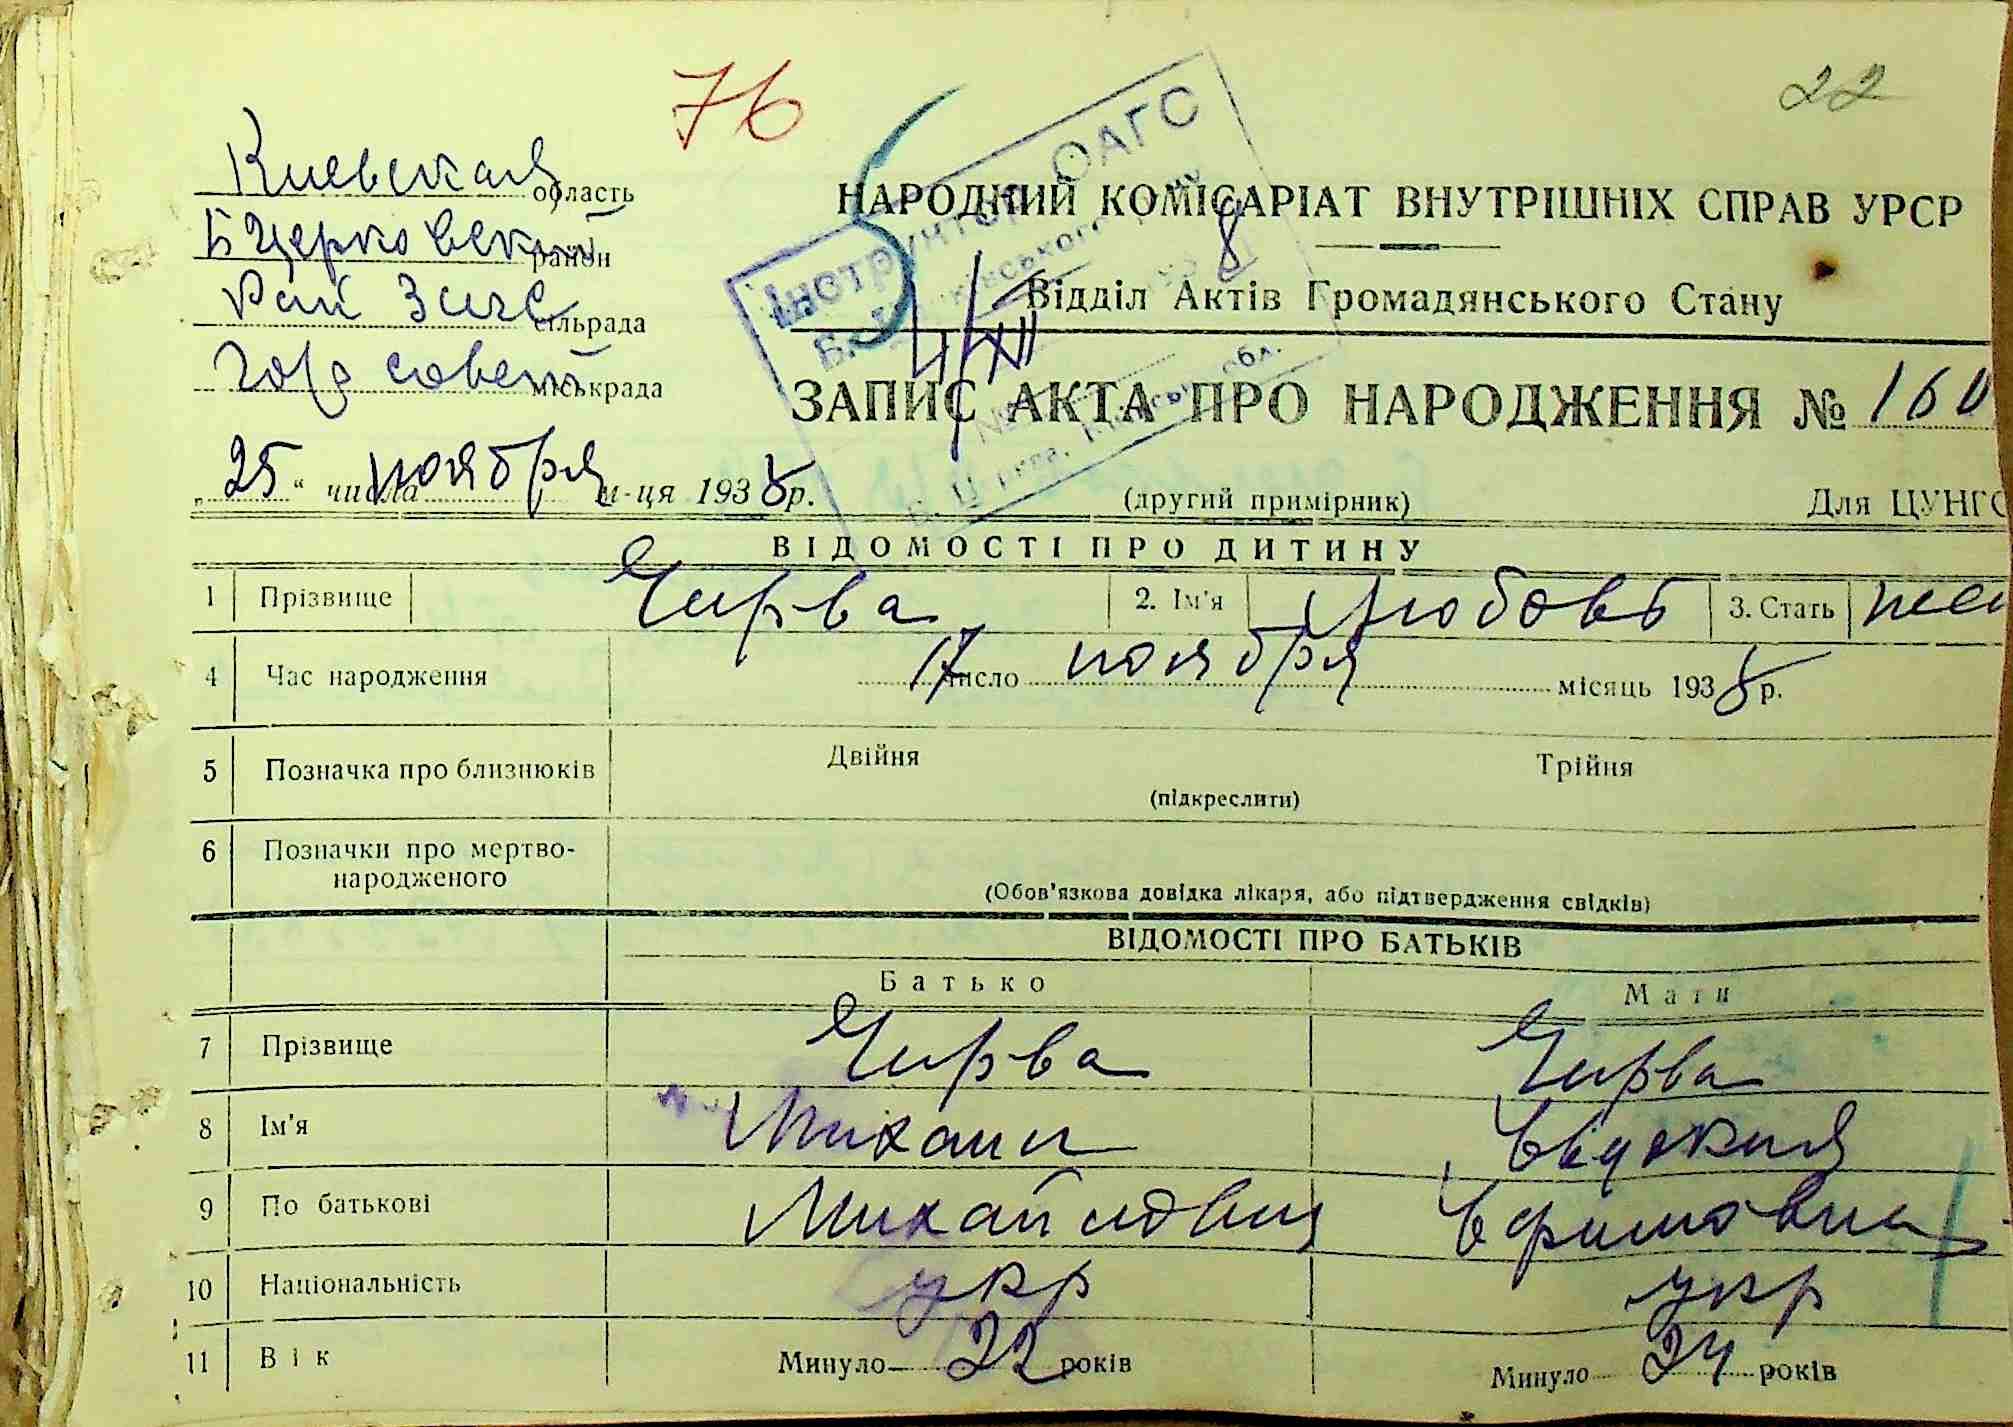 76
22
Киевская область
Б Церковский район
Рай Загс сільрада
Гор совет міськрада
Інструктор ОАГС
НАРОДНИЙ КОМІСАРІАТ ВНУТРІШНІХ СПРАВ УРСР
Відділ Актів Громадянського Стану
4/XII
ЗАПИС АКТА ПРО НАРОДЖЕННЯ № 160
„25“ числа ноября м-ця 1938 р.
(другий примірник)
Для ЦУНГО
ВІДОМОСТІ ПРО ДИТИНУ
1 Прізвище Чирва 2. Ім'я Любовь 3. Стать жен
4 Час народження 17 число ноября місяць 1938 р.
5 Позначка про близнюків Двійня Трійня
(підкреслити)
6 Позначки про мертво-
народженого
(Обов'язкова довідка лікаря, або підтвердження свідків)
ВІДОМОСТІ ПРО БАТЬКІВ
Батько Мати
7 Прізвище Чирва Чирва
8 Ім'я Михаил Евдокия
9 По батькові Михайлович Ефимовна
10 Національність укр укр
11 Вік Минуло 22 років Минуло 24 років